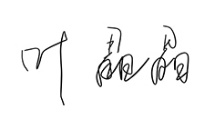 叶晶晶